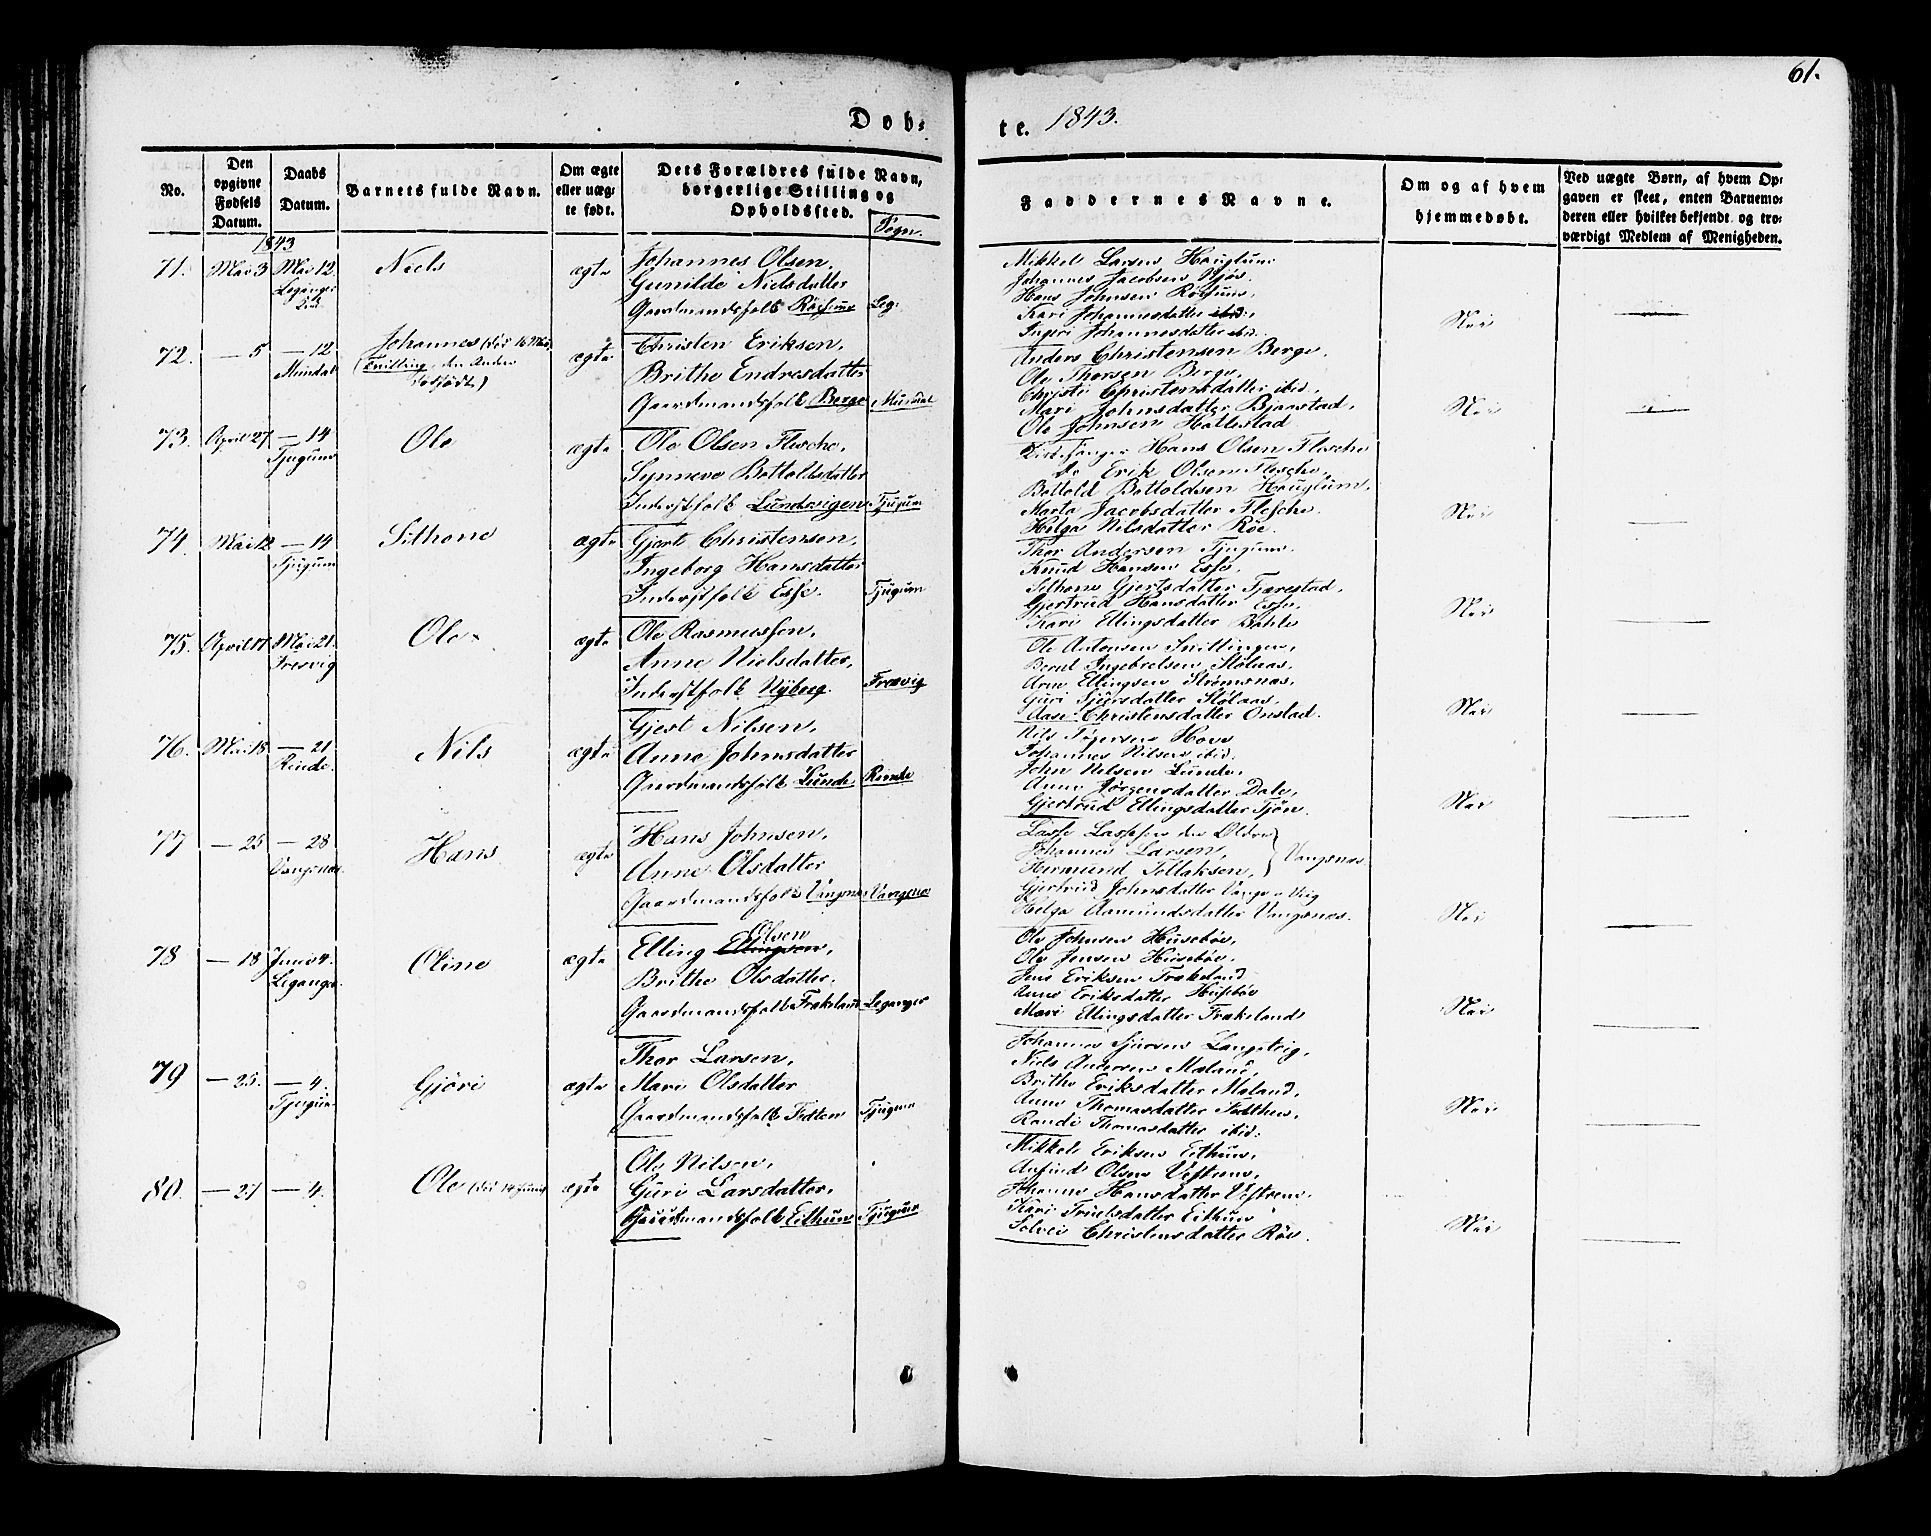 61.
Døb-
te. 1843.
No.
Den opgivne Fødsels Datum.
Daabs Datum.
Barnets fulde Navn.
Om ægte eller uægte født.
Dets Forældres fulde Navn, borgerlige Stilling og Opholdssted.
Sogn.
Faddernes Navne.
Om og af hvem hjemmedøbt.
Ved uægte Børn, af hvem Opgaven er skeet, enten Barnemoderen eller hvilket bekjendt og troværdigt Medlem af Menigheden.
1843
71. Mai 3 Mai 12. Leganger Niels ægte
Johannes Olsen,
Gunilde Nielsdatter
Gaardmandsfolk Röysum Leg:
Mikkel Larsen Hauglum
Johannes Jacobsen Njøs.
Hans Johnsen Röysum,
Kari Johannesdatter ibid:,
Ingeri Johannesdatter ibid.
Nei
72. — 5 — 12 Mundal Johannes (død 16 Mai,
(Tvilling, den Anden
dødfødt) ægte
Christen Eriksen,
Brithe Endresdatter
Gaardmandsfolk Berge Mundal
Anders Christensen Berge,
Ole Thorsen Berge,
Christi Christensdatter ibid.
Mari Johnsdatter Bjaastad,
Ole Johnsen Hallestad
Nei
73. April 27 — 14 Tjugum Ole ægte
Ole Olsen Flesche,
Synneve Bottoldsdatter
Inderstfolk Lundesigen Tjugum
Kirkesanger Hans Olsen Flesche
Do Erik Olsen Flesche,
Bottold Bottoldsen Hauglum,
Marta Jacobsdatter Flesche.
Helga Nilsdatter Röe.
Nei
74. Mai 12 — 14 Tjugum Sithone ægte
Gjert Christensen,
Ingeborg Hansdatter
Inderstfolk Esse. Tjugum
Thor Andersen Tjugum.
Knud Hansen Esse.
Sithone Gjertsdatter Tjærestad,
Gjertrud Hansdatter Esse,
Kari Ellingsdatter Bahle
Nei
75. April 17 Mai 21. Fresvig Ole ægte
Ole Rasmussen,
Anne Nielsdatter,
Inderstfolk Nÿborg. Fresvig
Ole Antonsen
Bernt Ingebretsen Stølaas,
Arne Ellingsen Strømsnæs,
Guri Sjursdatter Stølaas,
Aase Christensdatter Onstad.
Nei
76. Mai 15 — 21 Rinde. Nils ægte
Gjert Nilsen,
Anna Johnsdatter
Gaardmandsfolk Lunde, Rinde
Nils Hove
Johannes Nilsen ibid.
John Nilsen Lunde,
Anne Jørgensdatter Dale,
Gjertrud Ellingsdatter Tjøn.
Nei
77 — 25 — 28 Vangsnæs. Hans ægte
Hans Johnsen,
Anne Olsdatter
Gaardmandsfolk Vangsnæs Vangsnæs
Lasse Lassesen den Ældre
Johannes Larsen,
Hermund Tollaksen, Vangsnæs
Gjertrud Johnsdatter
Helga Aamundsdatter Vangsnæs.
Nei
78 — 18 Juni 4. Leganger. Oline ægte
Olsen
Elling Ellingsen,
Brithe Olsdatter,
Gaardmandsfolk Frækeland Leganger
Ole Johnsen Husebøe,
Ole Jensen Husebøe,
Jens Eriksen Frækeland
Anne Eriksdatter Husebøe
Mari Ellingsdatter Frækeland
Nei
79 — 25. — 4. Tjugum Gjöri ægte
Thor Larsen,
Mari Olsdatter
Gaardmandsfolk Fedten Tjugum
Johannes Sjursen Langeteig,
Niels Andersen Maland,
Brithe Eriksdatter Maland,
Anne Thomasdatter Fedthen,
Randi Thomasdatter ibid:
Nei
80. — 27 — 4. Ole (død 14 Juni) ægte
Ole Nilsen,
Guri Larsdatter,
Gaardmandsfolk Eithum Tjugum
Mikkel Eriksen Eithun,
Anfind Olsen Vestrem,
Johanne Hansdatter Vestrem,
Kari Truelsdatter Eithum
Solvei Christensdatter Röe.
Nei